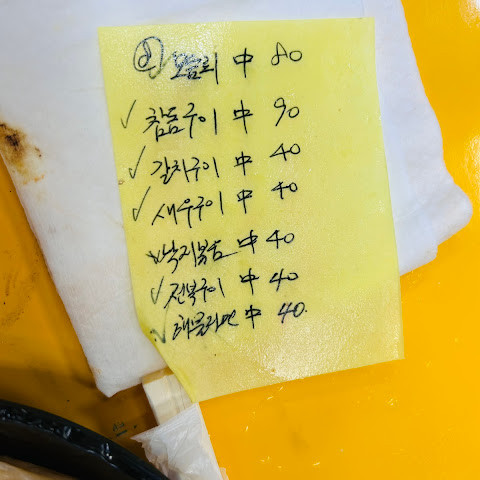 모듬회 中 80
✓ 참돔구이 中 90
✓ 갈치구이 中 40
✓ 새우구이 中 40
낙지볶음 中 40
✓ 전복구이 中 40
✓ 해물라면 中 40